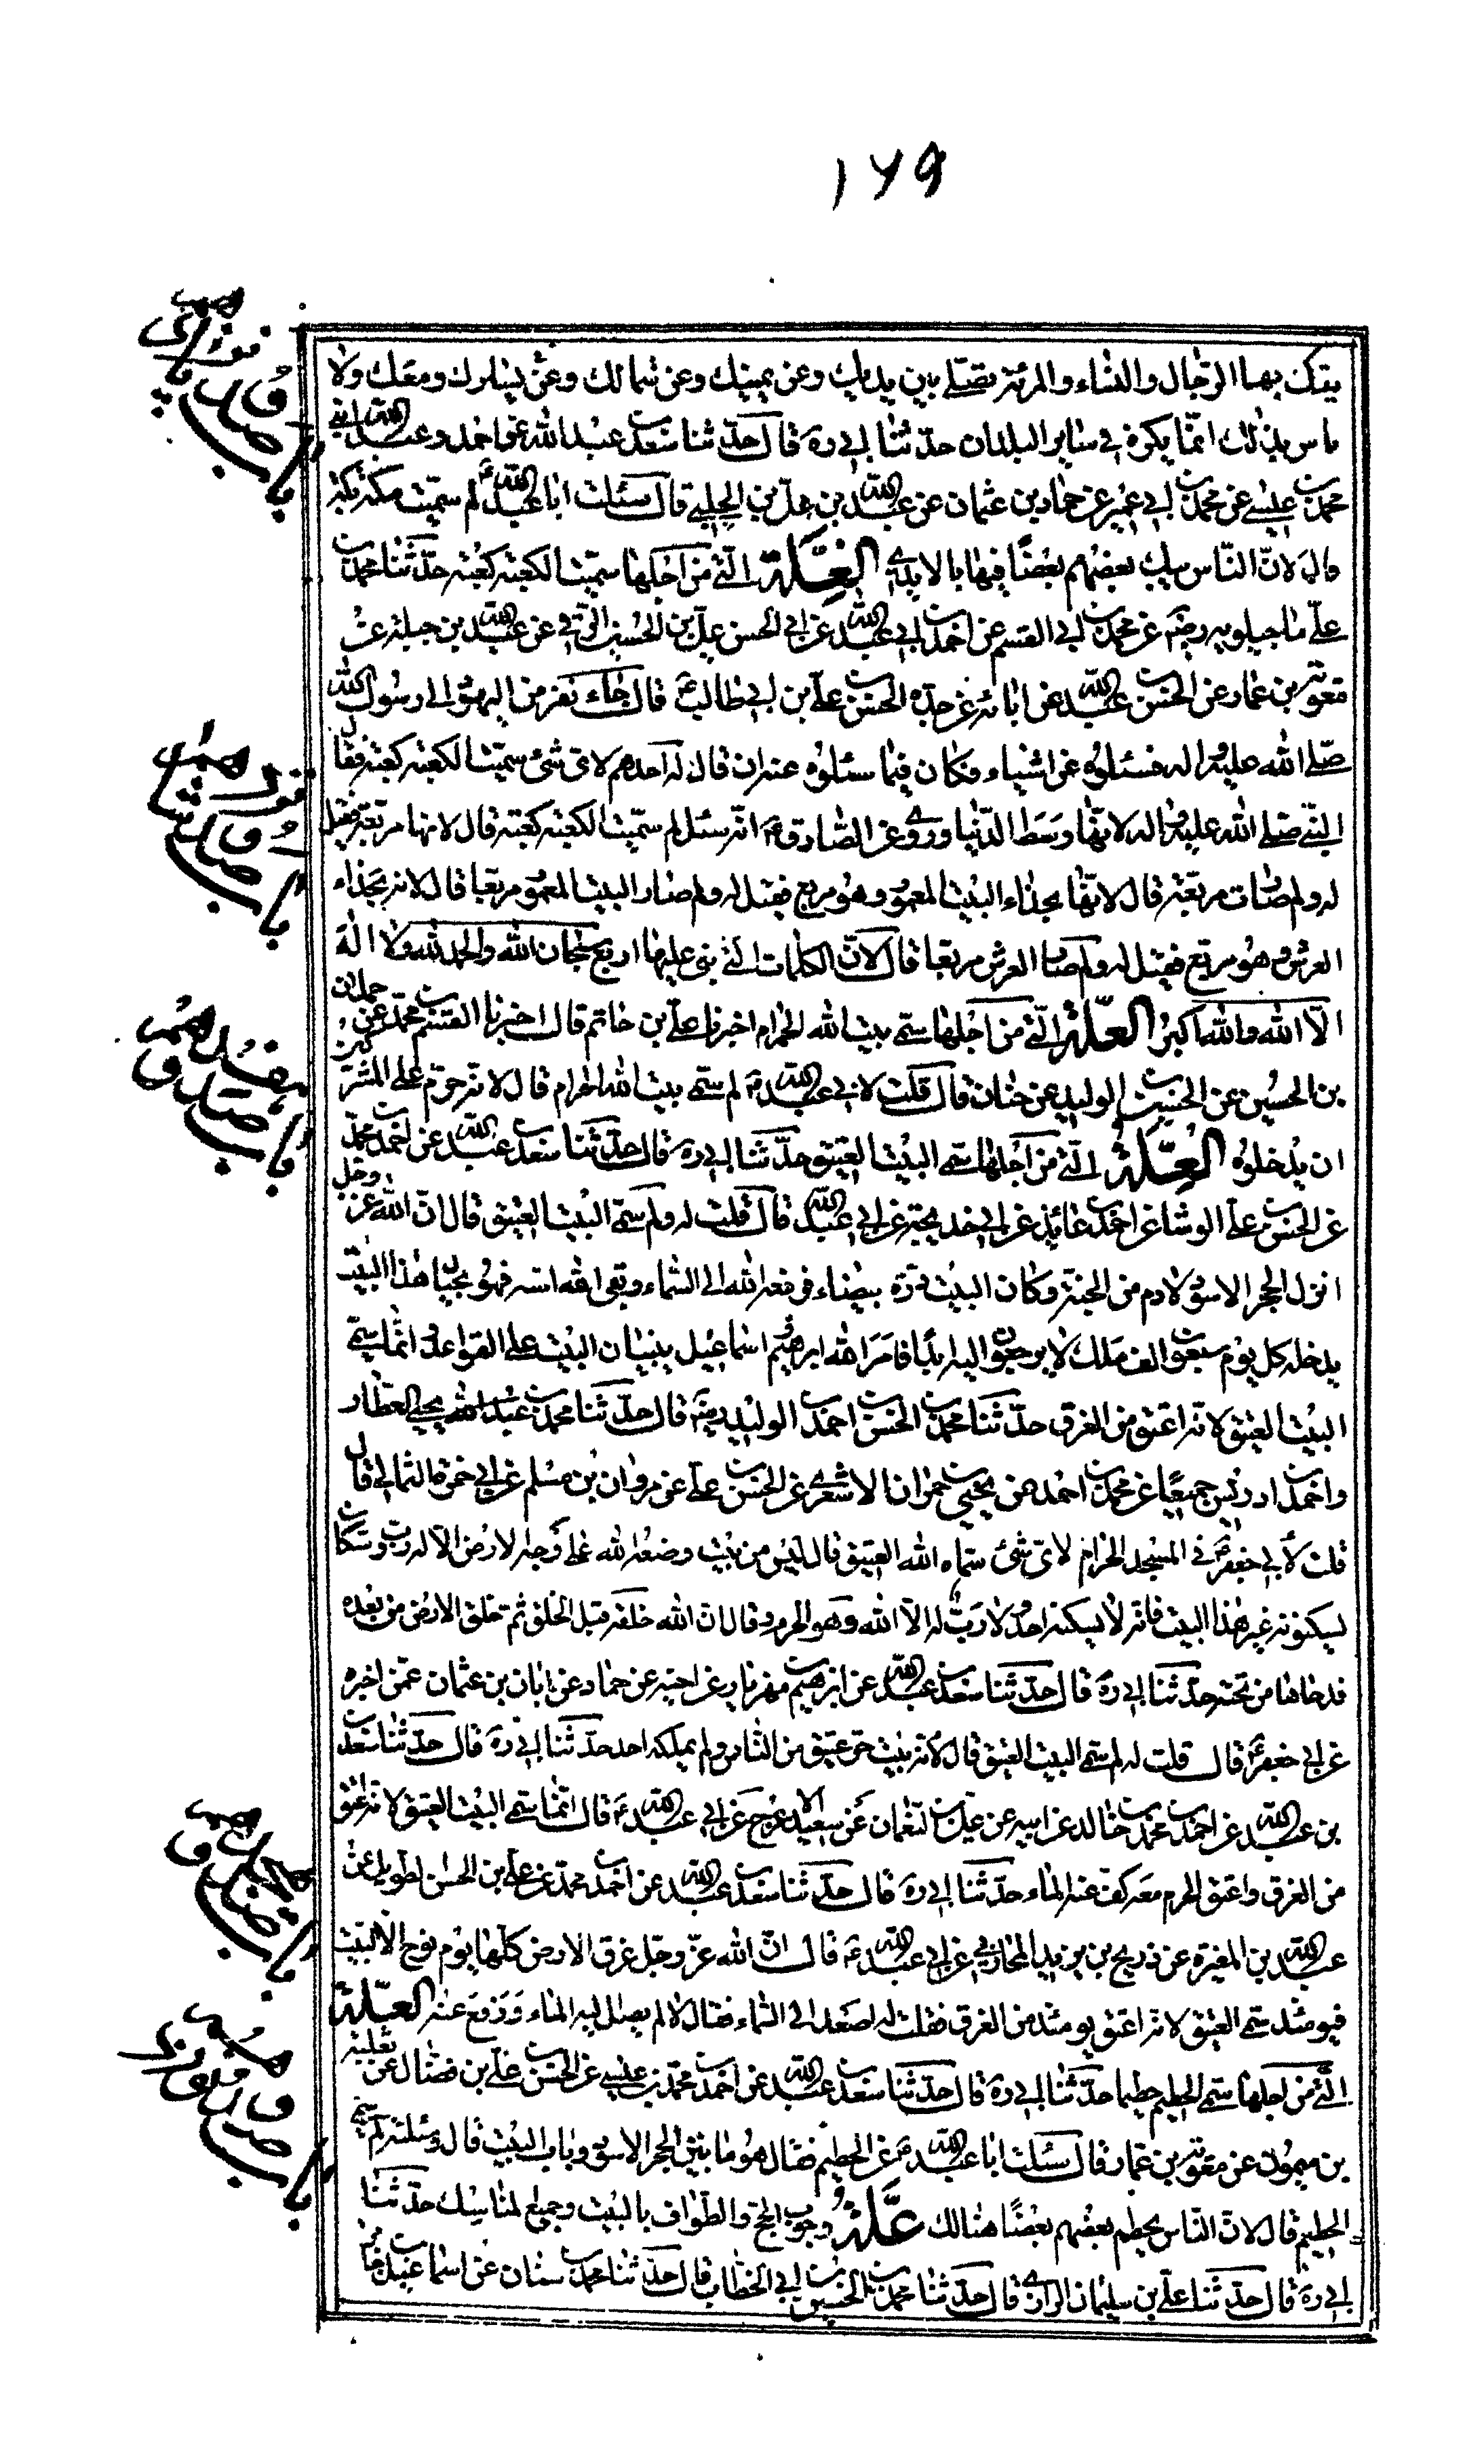 ١٦٩
يبتك بها الرجال والنساء والمرئة تصلى بين يديك وعن يمينك وعن شمالك وعن يسارك ومعك ولا
باس بذلك انما يكره في ساير البلدان حدثنا ابي ره قال حدثنا سعد بن عبد الله عن احمد وعبد الله ابنى
محمد بن عيسى عن محمد بن ابي عمير عن حماد بن عثمان عن عبيد الله بن على الحلبى قال سئلت ابا عبد الله ع لم سميت مكة بكة
قال لان الناس يبك بعضهم بعضا فيها بالايدى العلة التى من اجلها سميت الكعبة كعبة حدثنا محمد بن
على ماجيلويه رضه عن محمد بن ابي القسم عن احمد بن ابي عبد الله عن ابي الحسن على بن الحسين البرقى عن عبد الله بن جبلة عن
معوية بن عمار عن الحسن بن عبد الله عن ابائه عن جده الحسن بن على بن ابي طالب ع قال جاء نفر من اليهود الى رسول الله
صلى الله عليه واله فسئلوه عن اشياء فكان فيما سئلوه عنه ان قال له احدهم لاى شئ سميت الكعبة كعبة فقال
النبى صلى الله عليه واله لانها وسط الدنيا وروى عن الصادق ع انه سئل لم سميت الكعبة كعبة قال لانها مربعة فقيل
له ولم صارت مربعة قال لانها بحذاء البيت المعمور وهو مربع فقيل له ولم صار البيت المعمور مربعا قال لانه بحذاء
العرش وهو مربع فقيل له ولم صار العرش مربعا قال لان الكلمات التى بنى عليها اربع سبحان الله والحمد لله ولا اله
الا الله والله اكبر العلة التى من اجلها سمى بيت الله الحرام اخبرنا على بن حاتم قال اخبرنا القسم بن محمد عن حمدان
بن الحسين عن الحسين بن الوليد عن حنان قال قلت لابى عبد الله ع لم سمى بيت الله الحرام قال لانه حرم على المشركين
ان يدخلوه العلة التى من اجلها سمى البيت العتيق حدثنا ابي ره قال حدثنا سعد بن عبد الله عن احمد بن محمد
عن الحسن بن على الوشا عن احمد بن عائذ عن ابى خديجة عن ابى عبد الله قال قلت له ولم سمى البيت العتيق قال ان الله عز وجل
انزل الحجر الاسود لادم من الجنة وكان البيت درة بيضاء فرفعه الله الى السماء وبقى اسه فهو بحيال هذا البيت
يدخله كل يوم سبعون الف ملك لا يرجعون اليه ابدا فامر الله ابرهيم واسماعيل ببنيان البيت على القواعد وانما سمى
البيت العتيق لانه اعتق من الغرق حدثنا محمد بن الحسن بن احمد بن الوليد رضه قال حدثنا محمد بن يحيى العطار
واحمد بن ادريس جميعا عن محمد بن احمد بن يحيى بن عمران الاشعرى عن الحسن بن على عن مروان بن مسلم عن ابى حمزة الثمالى قال
قلت لابى جعفر ع فى المسجد الحرام لاى شئ سماه الله العتيق قال ليس من بيت وضعه الله على وجه الارض الا له رب وسكان
يسكنونه غير هذا البيت فانه لا يسكنه احد ولا رب له الا الله وهو الحرم وقال ان الله خلقه قبل الخلق ثم خلق الارض من بعده
فدحاها من تحته حدثنا ابي ره قال حدثنا سعد بن عبد الله عن ابرهيم بن مهزيار عن اخيه عن حماد عن ابان بن عثمان عمن اخبره
عن ابى جعفر ع قال قلت له لم سمى البيت العتيق قال لانه بيت حر عتيق من الناس ولم يملكه احد حدثنا ابي ره قال حدثنا سعد
بن عبد الله عن احمد بن محمد بن خالد عن ابيه عن على بن النعمان عن سعيد الاعرج عن ابى عبد الله ع قال انما سمى البيت العتيق لانه اعتق
من الغرق واعتق الحرم معه كف عنه الماء حدثنا ابي ره قال حدثنا سعد بن عبد الله عن احمد بن محمد عن على بن الحسن الطويل عن
عبد الله بن المغيرة عن ذريح بن يزيد المحاربى عن ابى عبد الله ع قال ان الله عز وجل غرق الارض كلها يوم نوح الا البيت
فيومئذ سمى العتيق لانه اعتق يومئذ من الغرق فقلت له اصعد الى السماء فقال لا لم يصل اليه الماء ورفع عنه العلة
التى من اجلها سمى الحطيم حطيما حدثنا ابي ره قال حدثنا سعد بن عبد الله عن احمد بن محمد بن عيسى عن الحسن بن على بن فضال عن ثعلبة
بن ميمون عن معوية بن عمار قال سئلت ابا عبد الله ع عن الحطيم فقال هو ما بين الحجر الاسود وباب البيت قال وسئلته لم سمى
الحطيم قال لان الناس يحطم بعضهم بعضا هنالك علة وجوب الحج والطواف بالبيت وجميع المناسك حدثنا
ابي ره قال حدثنا على بن سليمان الرازى قال حدثنا محمد بن الحسين بن ابى الخطاب قال حدثنا محمد بن سنان عن اسماعيل بن جابر